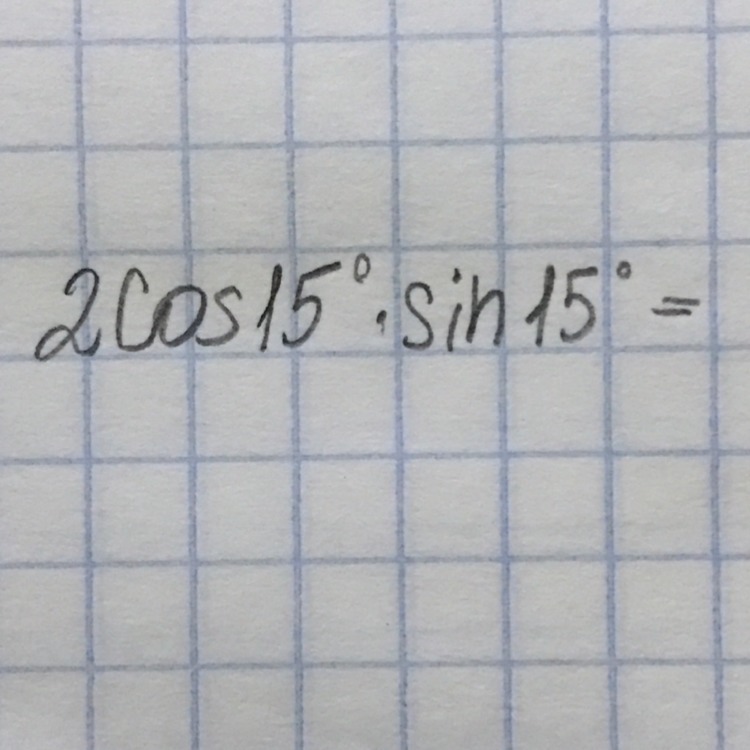 2cos15°·sin15°=